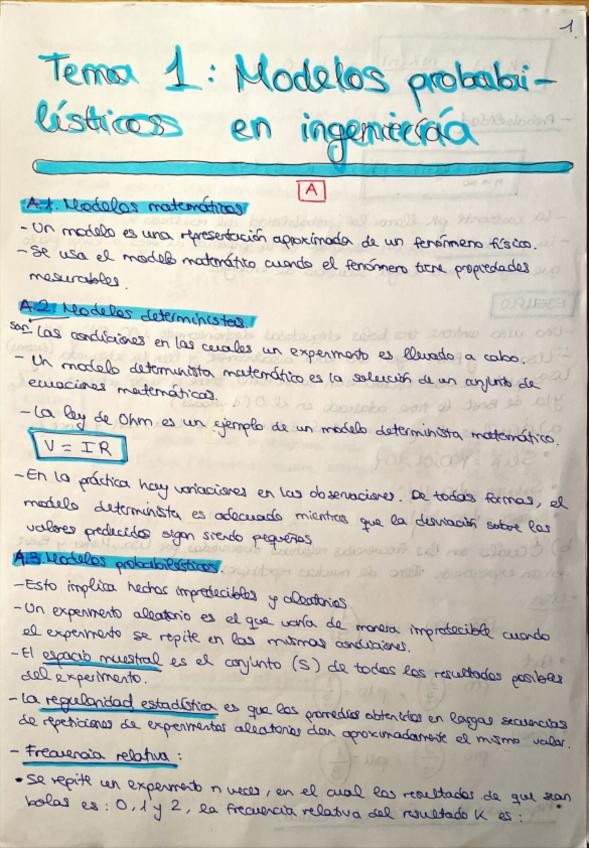 1.
Tema 1: Modelos probabi-
lísticos en ingeniería
A
A.1. Modelos matemáticos
- Un modelo es una representación aproximada de un fenómeno físico.
- Se usa el modelo matemático cuando el fenómeno tiene propiedades
mesurables.
A.2. Modelos deterministas.
son
- Las condiciones en las cuales un experimento es llevado a cabo.
- Un modelo determinista matemático es la solución de un conjunto de
ecuaciones matemáticas.
- La ley de Ohm es un ejemplo de un modelo determinista matemático.
V = IR
- En la práctica hay variaciones en las observaciones. De todas formas, el
modelo determinista es adecuado mientras que la desviación sobre los
valores predecidos sigan siendo pequeños
A.3 Modelos probabilísticos.
- Esto implica hechos impredecibles y aleatorios
- Un experimento aleatorio es el que varía de manera impredecible cuando
el experimento se repite en las mismas condiciones.
- El espacio muestral es el conjunto (S) de todos los resultados posibles
del experimento.
- La regularidad estadística es que los promedios obtenidos en largas secuencias
de repeticiones de experimentos aleatorios dan aproximadamente el mismo valor.
- Frecuencia relativa:
• Se repite un experimento n veces, en el cual los resultados de que sean
bolas es: 0, 1 y 2, la frecuencia relativa del resultado K es: